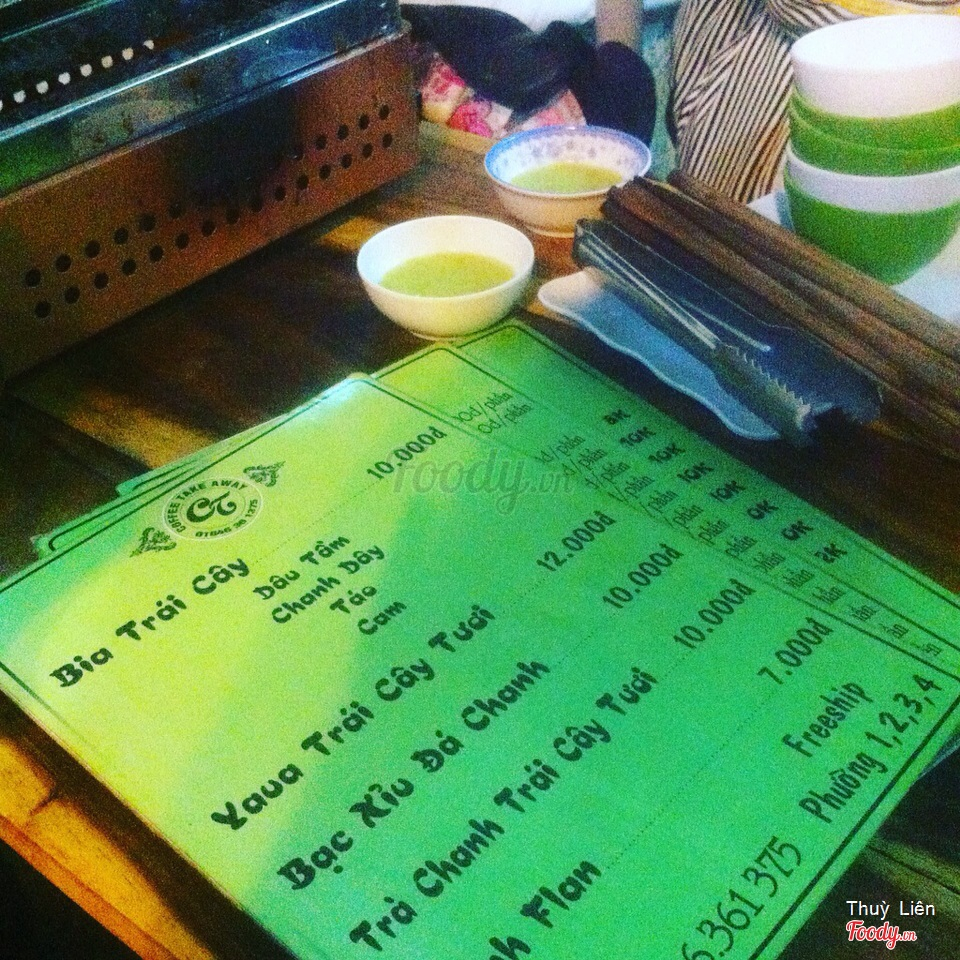 COFFEE TAKE AWAY
CT
Bia Trái Cây 10.000đ
Dâu Tằm
Chanh Dây
Táo
Cam
Yaua Trái Cây Tươi 12.000đ
Bạc Xỉu Đá Chanh 10.000đ
Trà Chanh Trái Cây Tươi 10.000đ
Flan 7.000đ
Freeship
Phường 1,2,3,4
6.361 375
0đ/phần
0đ/phần
đ/phần 8K
/phần 10K
/phần 10K
phần 10K
/phần 10K
phần
phần
foody.vn
Thuỳ Liên
Foody.vn